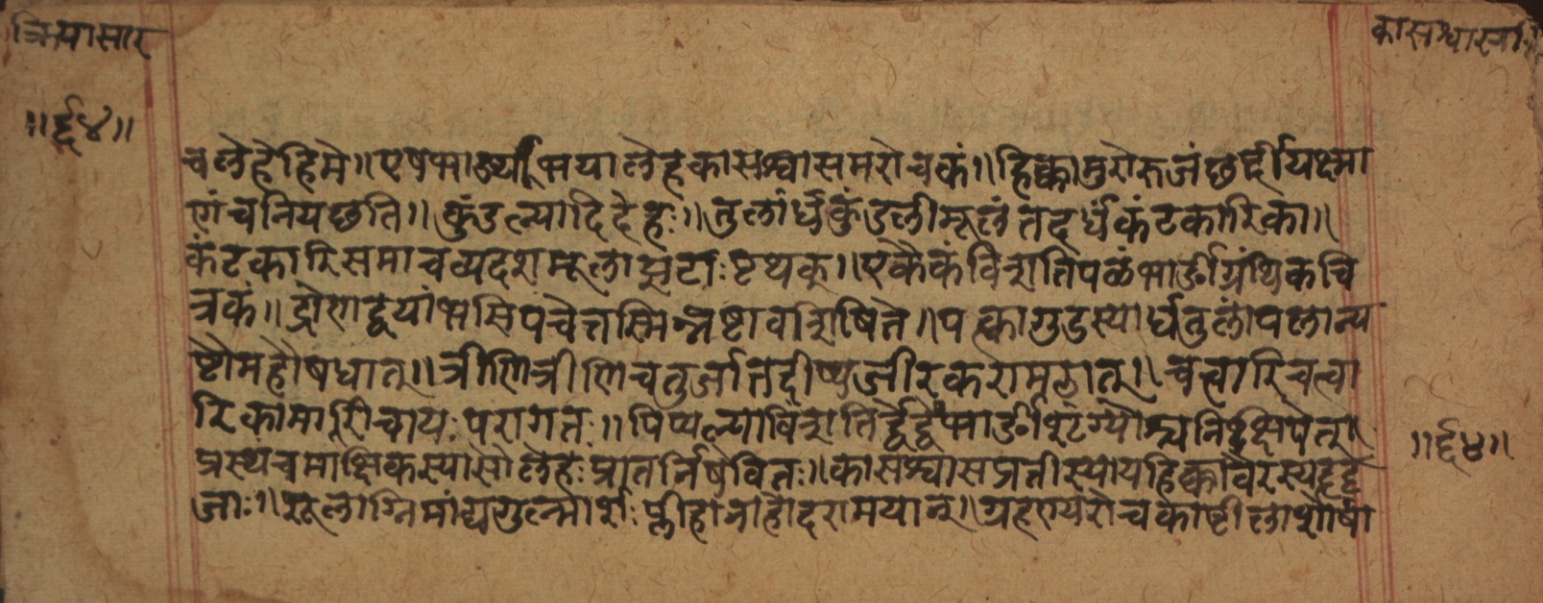 क्रियासार
कासश्वास
॥६४॥
चलेहेहिमे॥एषभार्ङ्ग्याभयालेहकासश्वासमरोचकं॥हिक्कामुरोरुजंछर्दीयक्ष्मा
णंचनियछति॥कुंडल्यादिदेहः॥तुलार्धंकुंडलीमूलंतदर्धंकंटकारिका॥
कंटकारिसमाचव्यदशमूलाझटाःपृथक्॥एकैकंविंशतिपळंभार्ङीग्रंथिकचि
त्रकं॥द्रोणद्वयांभसिपंचेत्तस्मिन्नष्टावशिषिते॥पक्त्कागुडस्यार्धतुलांपलान्य
ष्टौमहौषधात्॥त्रीणित्रीणिचतुर्जातदीप्यजीरकरामठात्॥चत्वारिचत्वा
रिकामारीचायःपरागतः॥पिप्पल्याविंशतिर्द्वेद्वेभार्ङीशृंग्यौश्चनिक्षिपेत्॥
प्रस्थंचमाक्षिकस्यासौलेहःप्रातर्निषेवितः॥कासश्वासप्रतीस्यायहिक्कावैरस्यहृद्रु
जाः॥शूलाग्निमांद्यगुल्मार्शःप्लीहानाहोदरामयान्॥ग्रहण्यरोचकाष्टीलाशोषा
॥६४॥